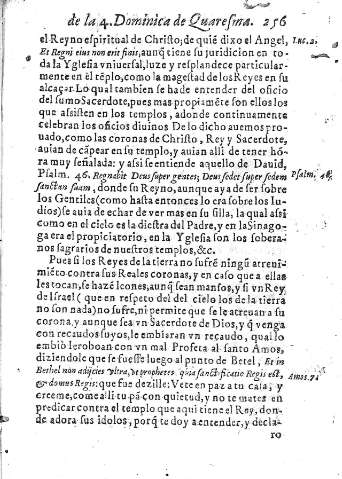 de la 4. Dominica de Quaresma. 256
el Reyno espiritual de Christo; de quiē dixo el Angel,
Luc. 2.
Et Regni eius non erit finis, aunq̃ tiene su juridicion en to-
da la Yglesia vniuersal, luze y resplandece particular-
mente en el tēplo, como la magestad de los Reyes en su
alcaçar. Lo qual tambien se ha de entender del oficio
del sumo Sacerdote, pues mas propiamēte son ellos los
que assisten en los templos, adonde continuamente
celebran los oficios diuinos De lo dicho auemos pro-
uado, como las coronas de Christo, Rey y Sacerdote,
auian de cāpear en su templo, y auian alli de tener hō-
ra muy señalada: y assi se entiende aquello de Dauid,
Psalm. 46. Regnabit Deus super gentes; Deus sedet super sedem
Psalm. 46.
sanctam suam, donde su Reyno, aunque aya de ser sobre
los Gentiles (como hasta entonces lo era sobre los Iu-
dios) se auia de echar de ver mas en su silla, la qual assi
como en el cielo es la diestra del Padre, y en la Sinago-
ga era el propiciatorio, en la Yglesia son los sobera-
nos sagrarios de nuestros templos, &c.
Pues si los Reyes de la tierra no sufrē ningū atreui-
miēto contra sus Reales coronas, y en caso que a ellas
les tocan, se hazē leones, aunq̃ sean mansos, y si vn Rey
de Israel (que en respeto del del cielo los de la tierra
no son nada) no sufre, ni permite que se le atreuan a su
corona, y aunque sea vn Sacerdote de Dios, y q̃ venga
con recaudos suyos, le embiaran vn recaudo, qual lo
embiò Ieroboan con vn mal Profeta al santo Amos,
diziendole que se fuesse luego al punto de Betel, Et in
Bethel non adijcies vltra, vt prophetes quia sanctificatio Regis est,
Amos. 7.
& domus Regis: que fue dezille: Vete en paz a tu casa, y
creeme, come alli tu pā con quietud, y no te metas en
predicar contra el templo que aqui tiene el Rey, don-
de adora sus idolos, porq̃ te doy a entender, y decla-
ro